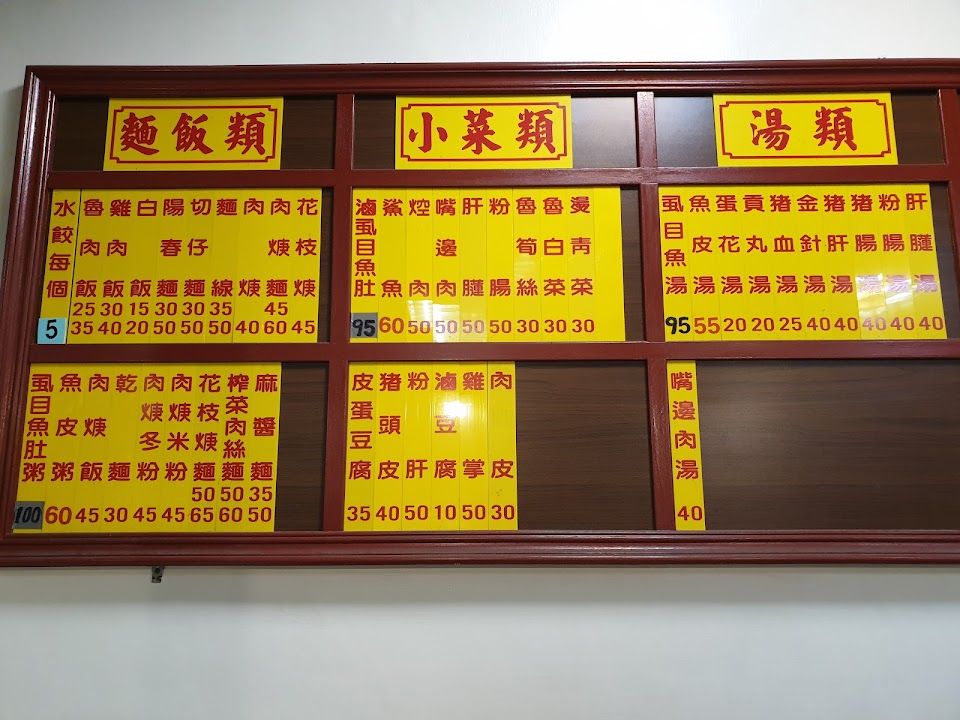 麵飯類
水餃每個 5
魯肉飯 25 35
雞肉飯 30 40
白飯 15 20
陽春麵 30 50
切仔麵 30 50
麵線 35 50
肉焿 40
肉焿麵 45 60
花枝焿 45
虱目魚肚粥 100
魚皮粥 60
肉焿飯 45
乾麵 30
肉焿冬粉 45
肉焿米粉 45
花枝焿麵 50 65
榨菜肉絲麵 50 60
麻醬麵 35 50
小菜類
滷虱目魚肚 95
鯊魚 60
焢肉 50
嘴邊肉 50
肝 50
粉腸 50
魯筍絲 30
魯白菜 30
燙青菜 30
皮蛋豆腐 35
豬頭皮 40
粉肝 50
滷豆腐 10
雞掌 50
肉皮 30
湯類
虱目魚湯 95
魚皮湯 55
蛋花湯 20
貢丸湯 20
豬血湯 25
金針湯 40
豬肝湯 40
豬腸湯 40
粉腸湯 40
肝 湯 40
嘴邊肉湯 40